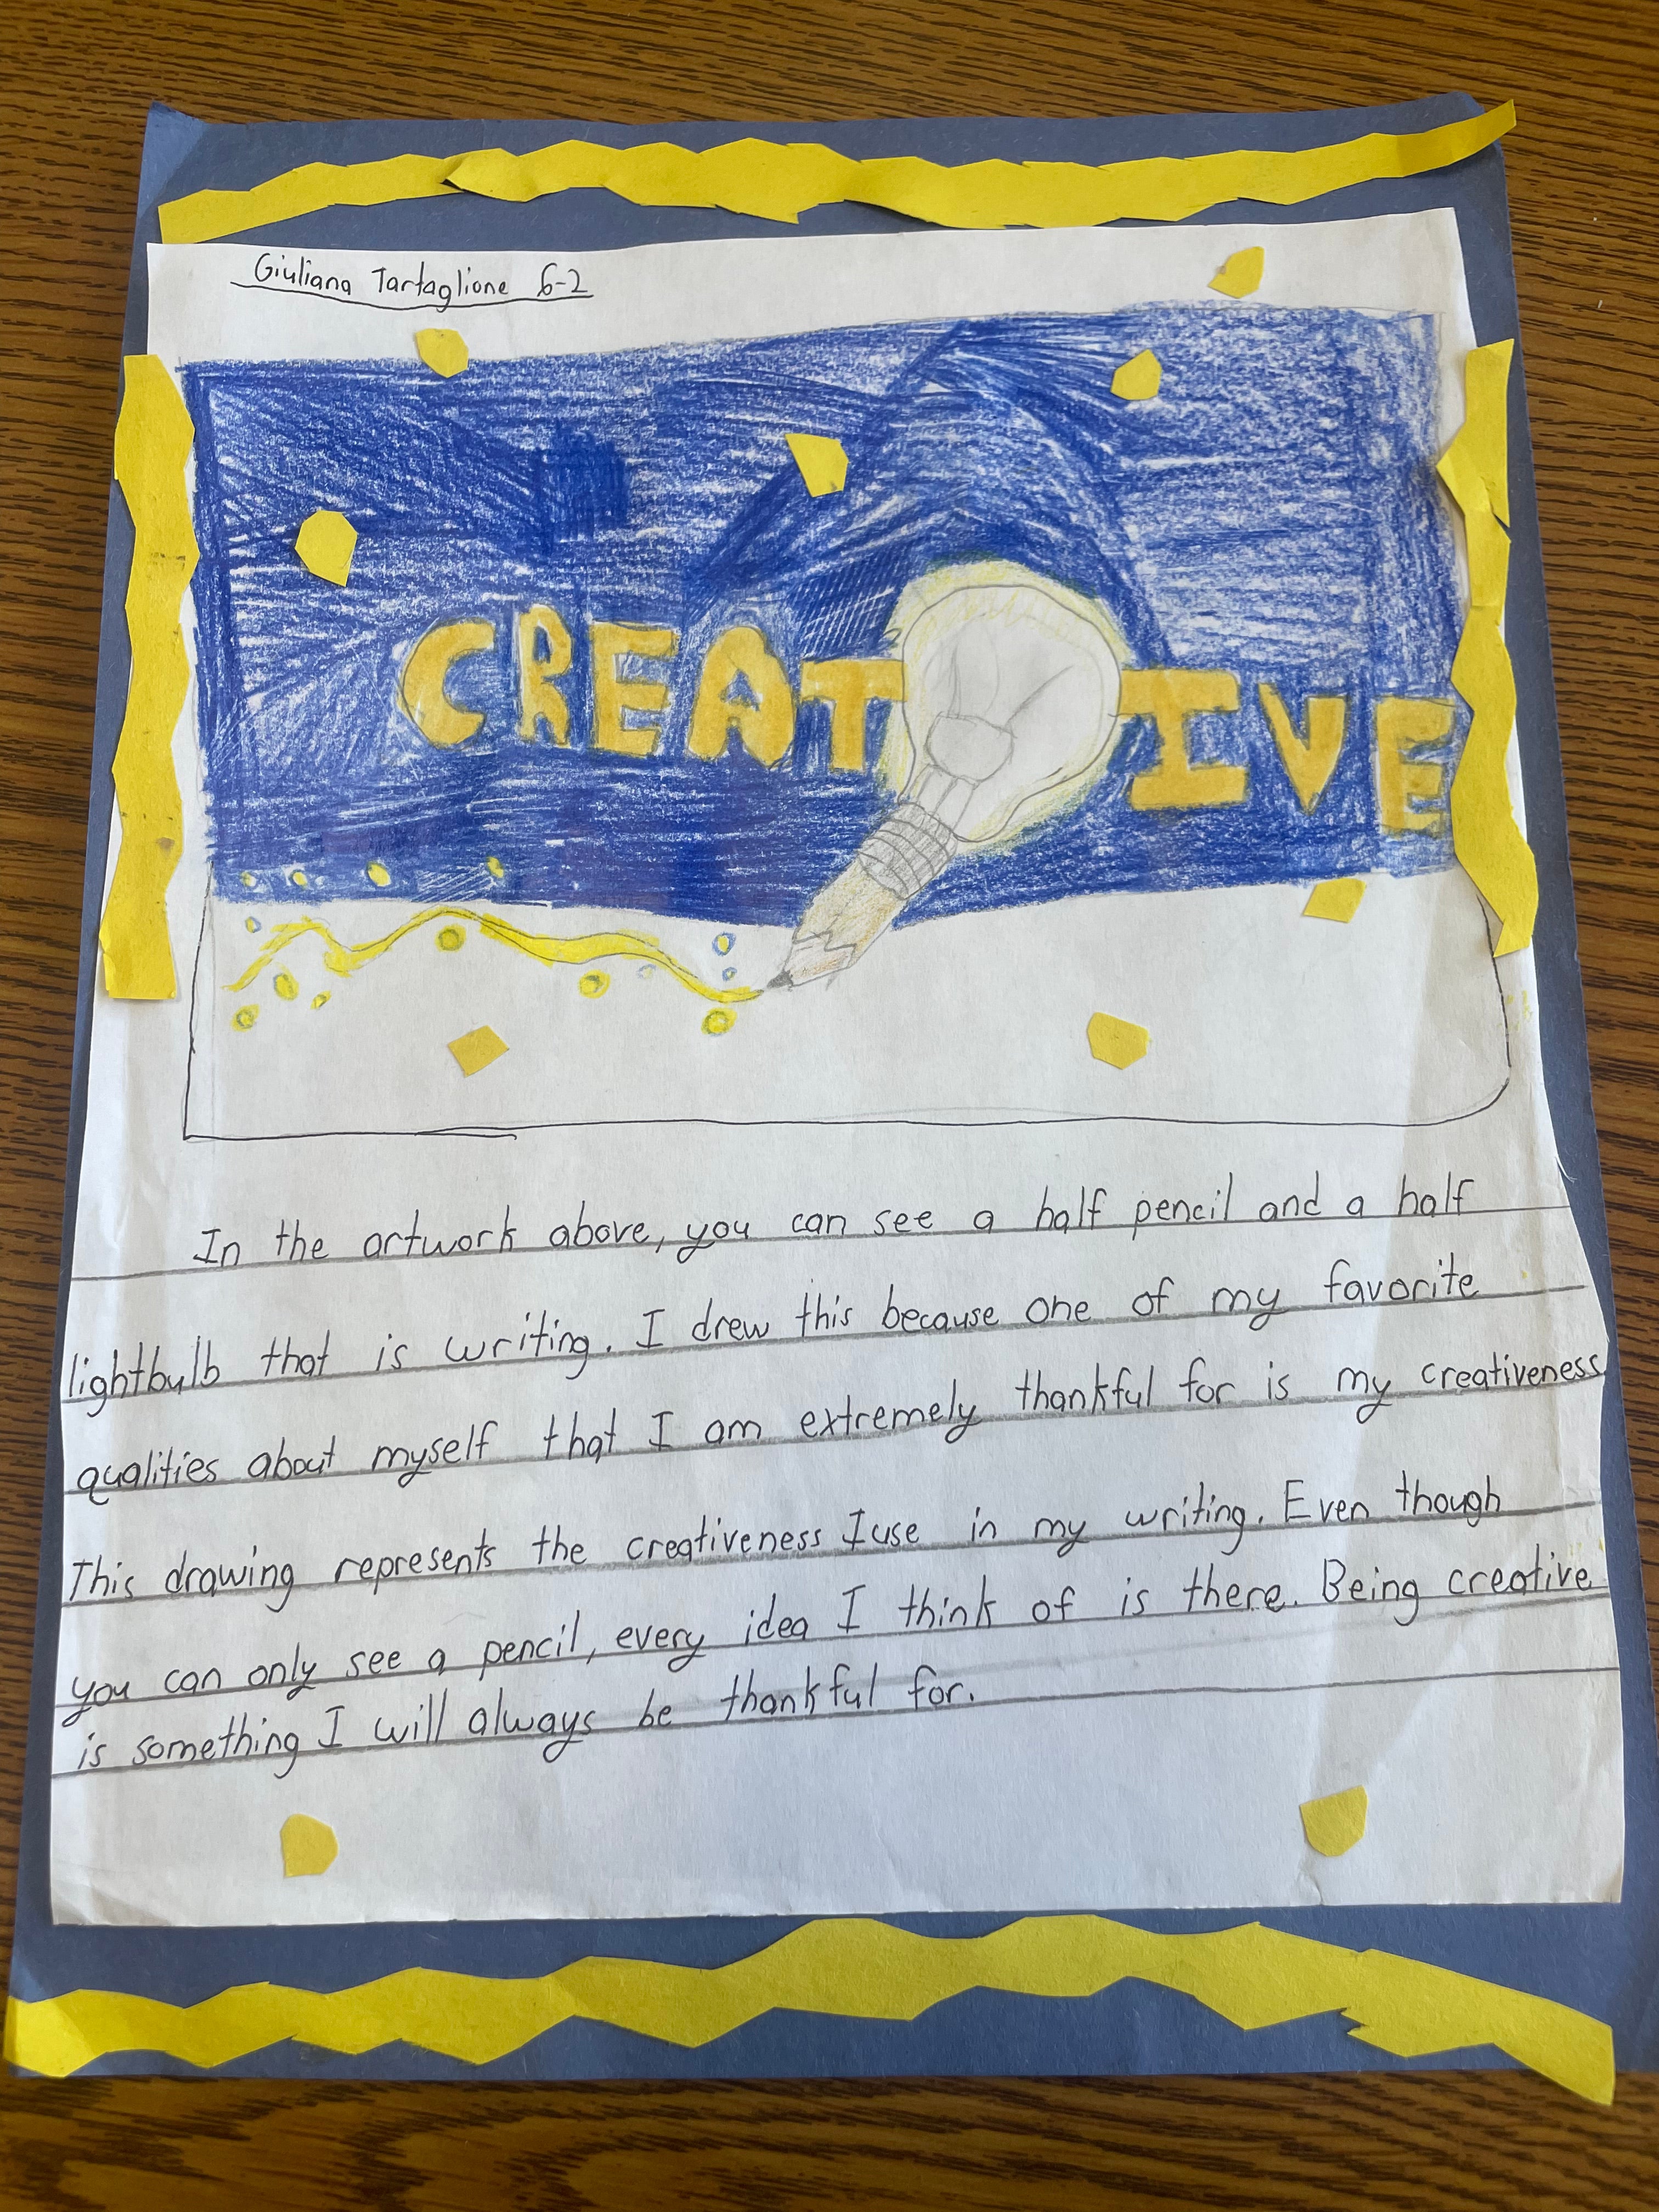 Giuliana Tartaglione 6-2
CREATIVE
In the artwork above, you can see a half pencil and a half
lightbulb that is writing. I drew this because one of my favorite
qualities about myself that I am extremely thankful for is my creativeness
This drawing represents the creativeness I use in my writing. Even though
you can only see a pencil, every idea I think of is there. Being creative
is something I will always be thankful for.